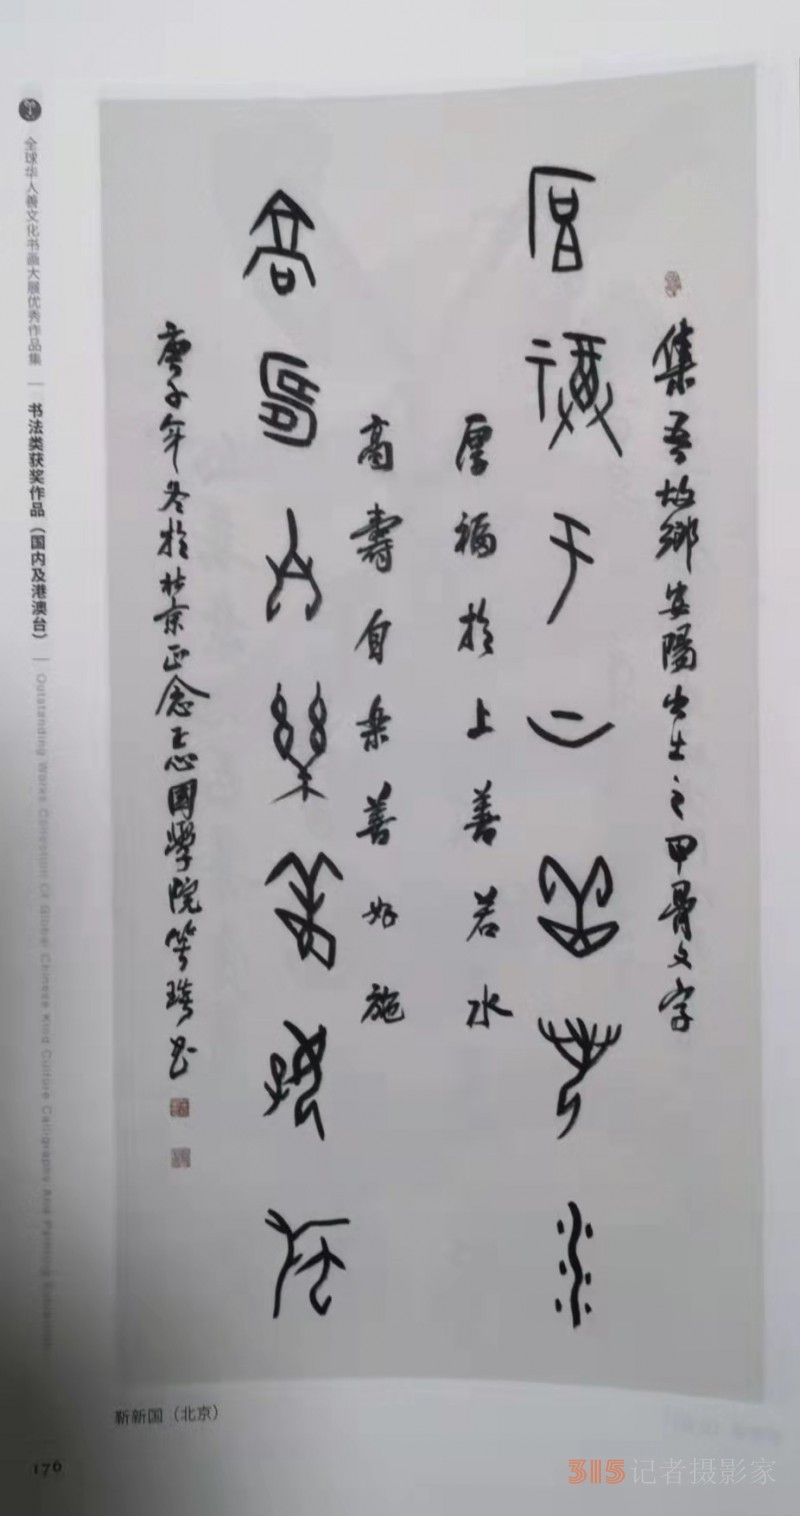 集吾故鄉安陽出土之甲骨文字
厚福於上善若水
高壽自樂善好施
庚子年冬於北京正念正心國學院
全球华人善文化书画大展优秀作品集 | 书法类获奖作品（国内及港澳台） | Outstanding Works Collection Of Global Chinese Kind Culture Calligraphy And Painting Exhibition
靳新国（北京）
176
315记者摄影家